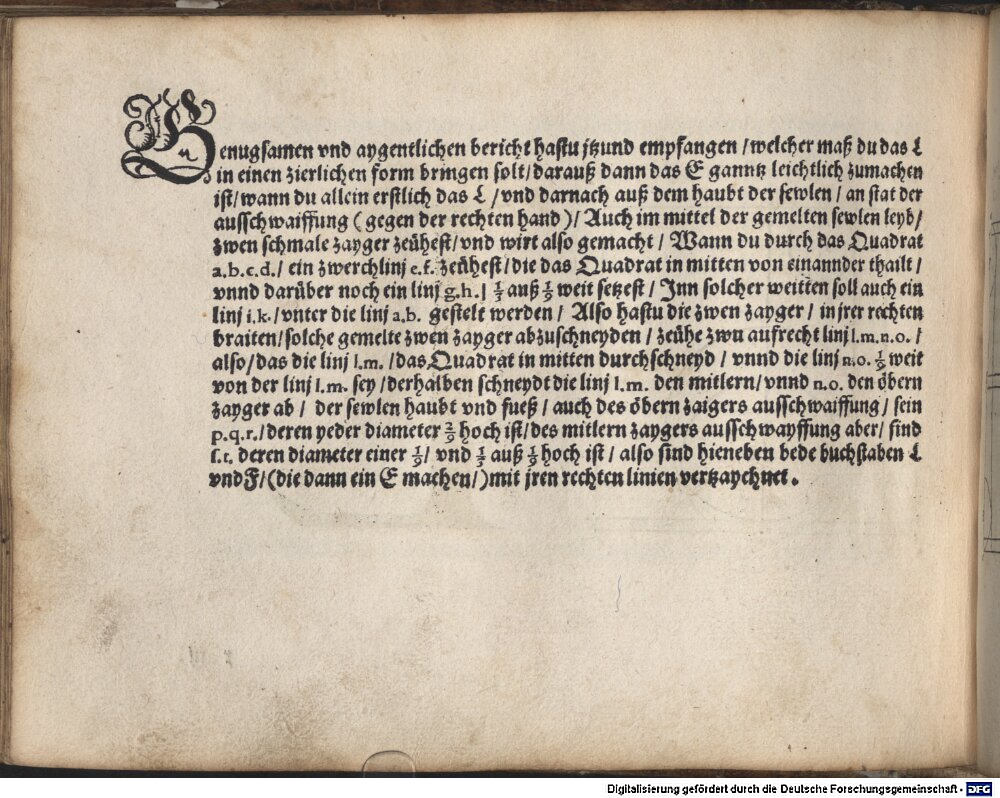 Genugsamen vnd aygentlichen bericht hastu jtzund empfangen / welcher maß du das L
in einen zierlichen form bringen solt / darauß dann das E ganntz leichtlich zumachen
ist / wann du allein erstlich das L / vnd darnach auß dem haubt der sewlen / an stat der
ausschwaiffung ( gegen der rechten hand ) / Auch im mittel der gemelten sewlen leyb /
zwen schmale zayger zeühest / vnd wirt also gemacht / Wann du durch das Quadrat
a.b.c.d. / ein zwerchlinj e.f. zeühest / die das Quadrat in mitten von einannder thailt /
vnnd darüber noch ein linj g.h. / 1/3 auß 1/9 weit setzest / Jnn solcher weitten soll auch ein
linj i.k. / vnter die linj a.b. gestelt werden / Also hastu die zwen zayger / in jrer rechten
braiten / solche gemelte zwen zayger abzuschneyden / zeühe zwu aufrecht linj l.m.n.o. /
also / das die linj l.m. / das Quadrat in mitten durchschneyd / vnnd die linj n.o. 1/9 weit
von der linj l.m. sey / derhalben schneydt die linj l.m. den mitlern / vnnd n.o. den öbern
zayger ab / der sewlen haubt vnd fueß / auch des öbern zaigers ausschwaiffung / sein
p.q.r. / deren yeder diameter 2/9 hoch ist / des mitlern zaygers ausschwayffung aber / sind
s.t. deren diameter einer 1/9 / vnd 1/3 auß 1/9 hoch ist / also sind hieneben bede buchstaben L
vnd F / (die dann ein E machen /) mit jren rechten linien vertzaychnet .
Digitalisierung gefördert durch die Deutsche Forschungsgemeinschaft - DFG